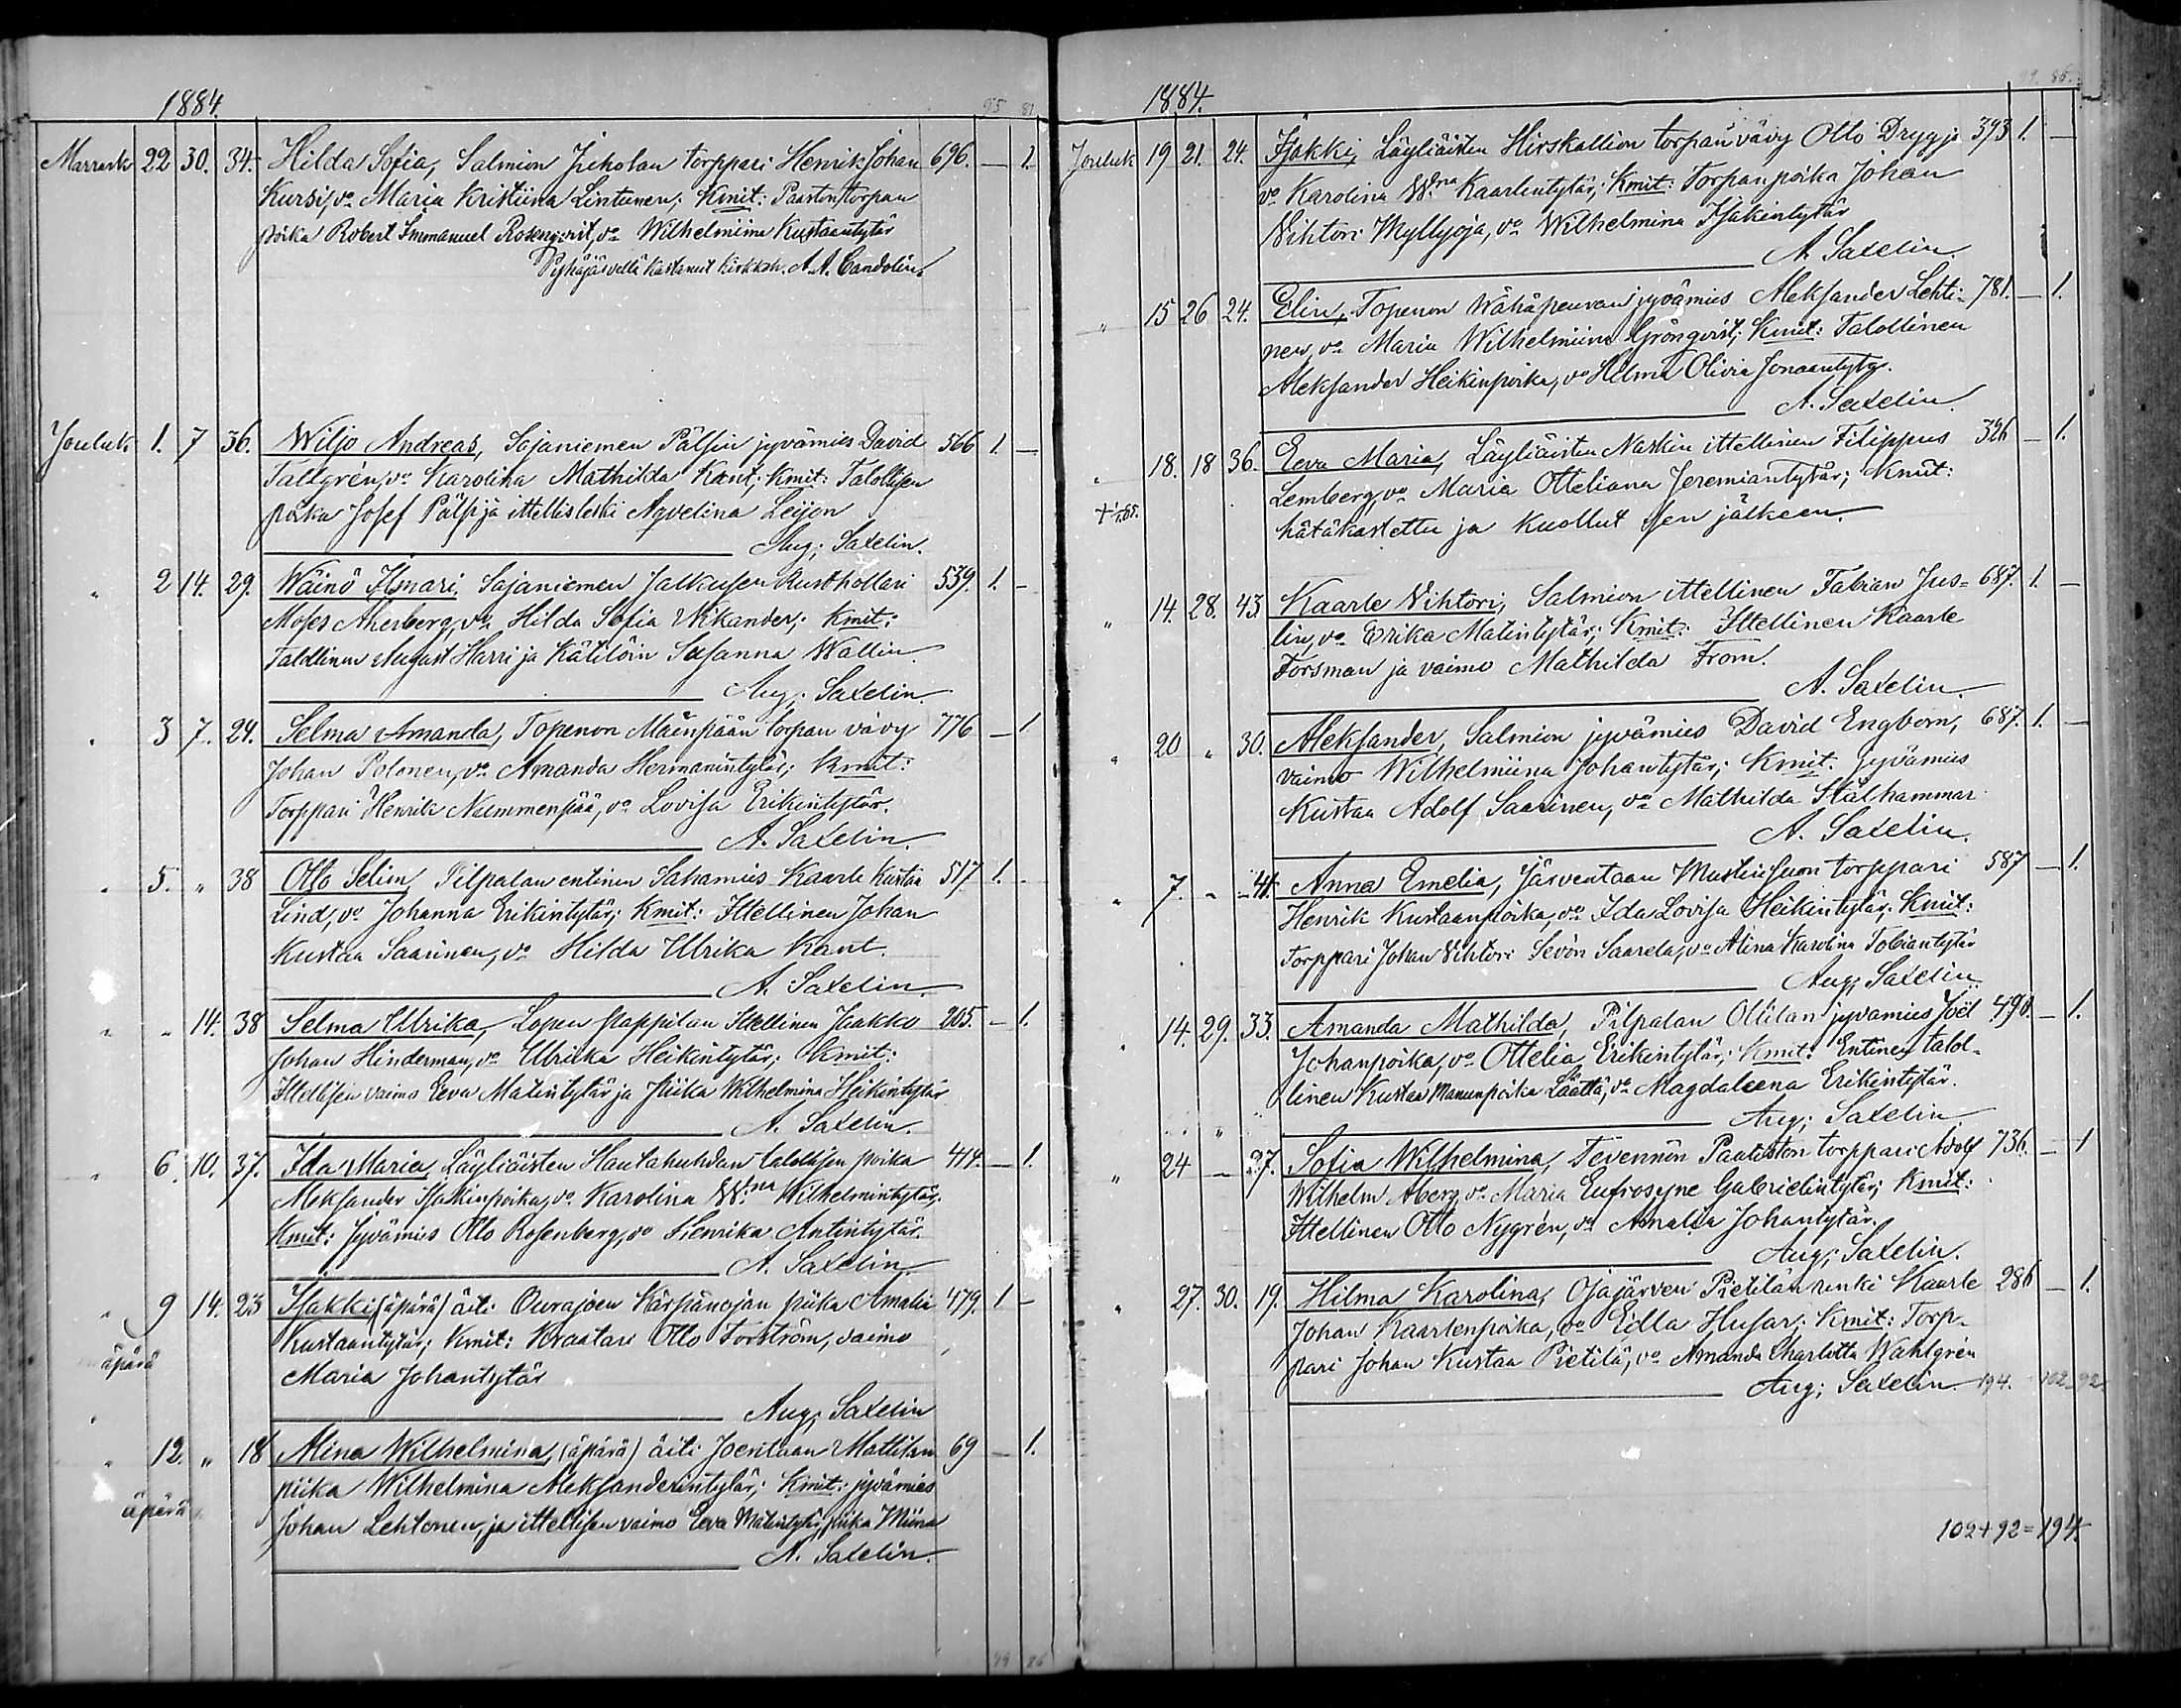 1884.
95 81
Marrask 22 30. 34. Hilda Sofia, Salmion torppari Henrik Johan 696. — 1.
Kursi, vo Maria Kristiina Lintunen; Kmit: Paaston torpan
poika Robert Immanuel Rosenqvist, vo Wilhelmiina Kustaantytär
Pyhäjärvellä kastanut Kirkkoh. A. A. Candolin.
Jouluk 1. 7 36. Wiljo Andreas, Sajaniemen Pälsin jyvämies David 566 1. —
Tallgrén, vo Karolina Mathilda Kant; Kmit: Talollisen
poika Josef Pälsi ja ittellisleski Agvelina Leijon
Aug; Saxelin.
" 2 14. 29. Wäinö Ilmari, Sajaniemen Jalkusen Rusthollari 539. 1. —
Moses Akerberg, vo Hilda Sofia Nikander; Kmit:
Talollinen August Harri ja Kätilöin Susanna Wallin.
Aug; Saxelin.
" 3 7. 24. Selma Amanda, Topenon Mäinpään torpan vävy 776 — 1
Johan Polonen, vo Amanda Hermanintytär; Kmit:
Torppari Henrik Nummenpää, vo Lovisa Erikintytär.
A. Saxelin.
" 5. " 38 Otto Selim, Pilpalan entinen Sahamies Kaarle Kustaa 517 1. —
Lind, vo Johanna Erikintytär; Kmit: Ittellinen Johan
Kustaa Saarinen, vo Hilda Ulrika Kant.
A. Saxelin.
" " 14. 38 Selma Ulrika, Lopen Pappilan Ittellinen Jaakko 205. — 1.
Johan Hinderman, vo Ulriika Heikintytär; Kmit:
Ittellisen vaimo Eeva Matintytär ja piika Wilhelmina Heikintytär
A. Saxelin.
" 6. 10. 37. Ida Maria, Läyliäisten Hautahuhdan talollisen poika 414. — 1.
Aleksander Isakinpoika, vo Karolina W:na Wilhelmintytär;
Kmit: Jyvämies Otto Rosenberg, vo Henrika Antintytär.
A. Saxelin.
" 9 14. 23 Isakki (äpärä) äiti Ourajoen Kärpänojan piika Amalia 479. 1 —
Kustaantytär; Kmit: Kraatari Otto Forström, vaimo
äpärä
Maria Johantytär
Aug; Saxelin
" 12. " 18 Alina Wilhelmina, (äpärä) äiti Joentaan Mattilan 69 — 1.
piika Wilhelmina Aleksanderintytär; Kmit: jyvämies
äpärä
Johan Lehtonen, ja ittellisen vaimo Eeva Matintytär, piika Miina
A. Saxelin.
99 86
1884.
99. 86.
Jouluk 19 21. 24. Isakki, Läyliäisten Hirskallion torpan vävy Otto Drygg ja 393 1. —
vo Karolina W:na Kaarlentytär; Kmit: Torpanpoika Johan
Vihtori Myllyoja, vo Wilhelmina Isakintytär
A. Saxelin.
" 15 26 24. Elin, Topenon Wähäpeuran jyvämies Aleksander Lehti- 781. — 1.
nen, vo Maria Wilhelmiina Grönqvist; Kmit: Talollinen
Aleksander Heikinpoika, vo Hilma Olivia Jonaantytr.
A. Saxelin.
" 18. 18 36. Eeva Maria, Läyliäisten Naskin ittellinen Filippus 326 — 1.
Lemberg, vo Maria Otteliana Jeremiantytär; Kmit:
hätäkastettu ja kuollut sen jälkeen.
" 14. 28. 43 Kaarle Vihtori, Salmion ittellinen Fabian Jus- 687. 1. —
lin, vo Erika Matintytär; Kmit: Ittellinen Kaarle
Forsman ja vaimo Mathilda From.
A. Saxelin.
" 20 " 30. Aleksander, Salmion jyvämies David Engbom, 687. 1. —
vaimo Wilhelmiina Johantytär; Kmit. Jyvämies
Kustaa Adolf Saarinen, vo Mathilda Stålhammar
A. Saxelin.
" 7. " 41. Anna Emelia, Järventaan Mustinsuon torppari 587 — 1.
Henrik Kustaanpoika, vo Ida Lovisa Heikintytär; Kmit:
Torppari Johan Vihtori Sevón Saarela, vo Alina Karolina Tobiantytär
Aug; Saxelin.
" 14. 29. 33. Amanda Mathilda, Pilpalan Ollilan jyvämies Joël 490. — 1.
Johanpoika, vo Ottelia Erikintytär; Kmit: Entinen talol-
linen Kustaa Manunpoika Läättä, vo Magdaleena Erikintytär.
Aug; Saxelin
" 24 — 27. Sofia Wilhelmina, Tevennön Paaliston torppari Adolf 736. — 1
Wilhelm Åberg, vo Maria Eufrosyne Gabrielintytär; Kmit:
Ittellinen Otto Nygrén, vo Amalia Johantytär.
Aug; Saxelin.
" 27. 30. 19. Hilma Karolina, Ojajärven Pietilän renki Kaarle 286 — 1.
Johan Kaarlenpoika, vo Edla Husar; Kmit: Torp-
pari Johan Kustaa Pietilä, vo Amanda Charlotta Wahlgrén
Aug; Saxelin. 194. 102 92.
102+92=194.